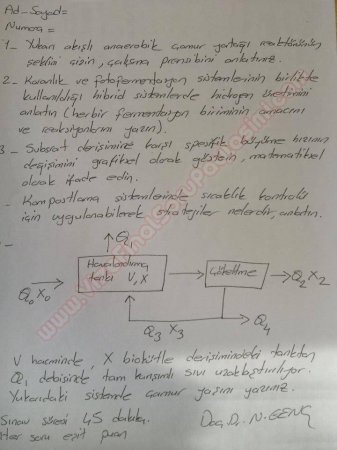 Ad-Soyad=
Numara=
1- Yukarı akışlı anaerobik çamur yatağı reaktörünün
şeklini çizin, çalışma prensibini anlatınız.
2- Karanlık ve fotofermentasyon sistemlerinin birlikte
kullanıldığı hibrid sistemlerde hidrojen üretimini
anlatın (herbir fermentasyon biriminin amacını
ve reaksiyonlarını yazın).
3- Substrat derişimine karşı spesifik büyüme hızının
değişimini grafiksel olarak gösterin, matematiksel
olarak ifade edin.
- Kompostlama sistemlerinde sıcaklık kontrolü
için uygulanabilecek stratejiler nelerdir, anlatın.
-
Q1
Q0 X0
Havalandırma
tankı V,X
Çökeltme
Q2 X2
Q3 X3
Q4
V hacminde, X biokütle derişimindeki tanktan
Q1 debisinde tam karışımlı sıvı uzaklaştırılıyor.
Yukarıdaki sistemde çamur yaşını yazınız.
Sınav süresi 45 dakika.
Her soru eşit puan
Doç. Dr. N. GENÇ